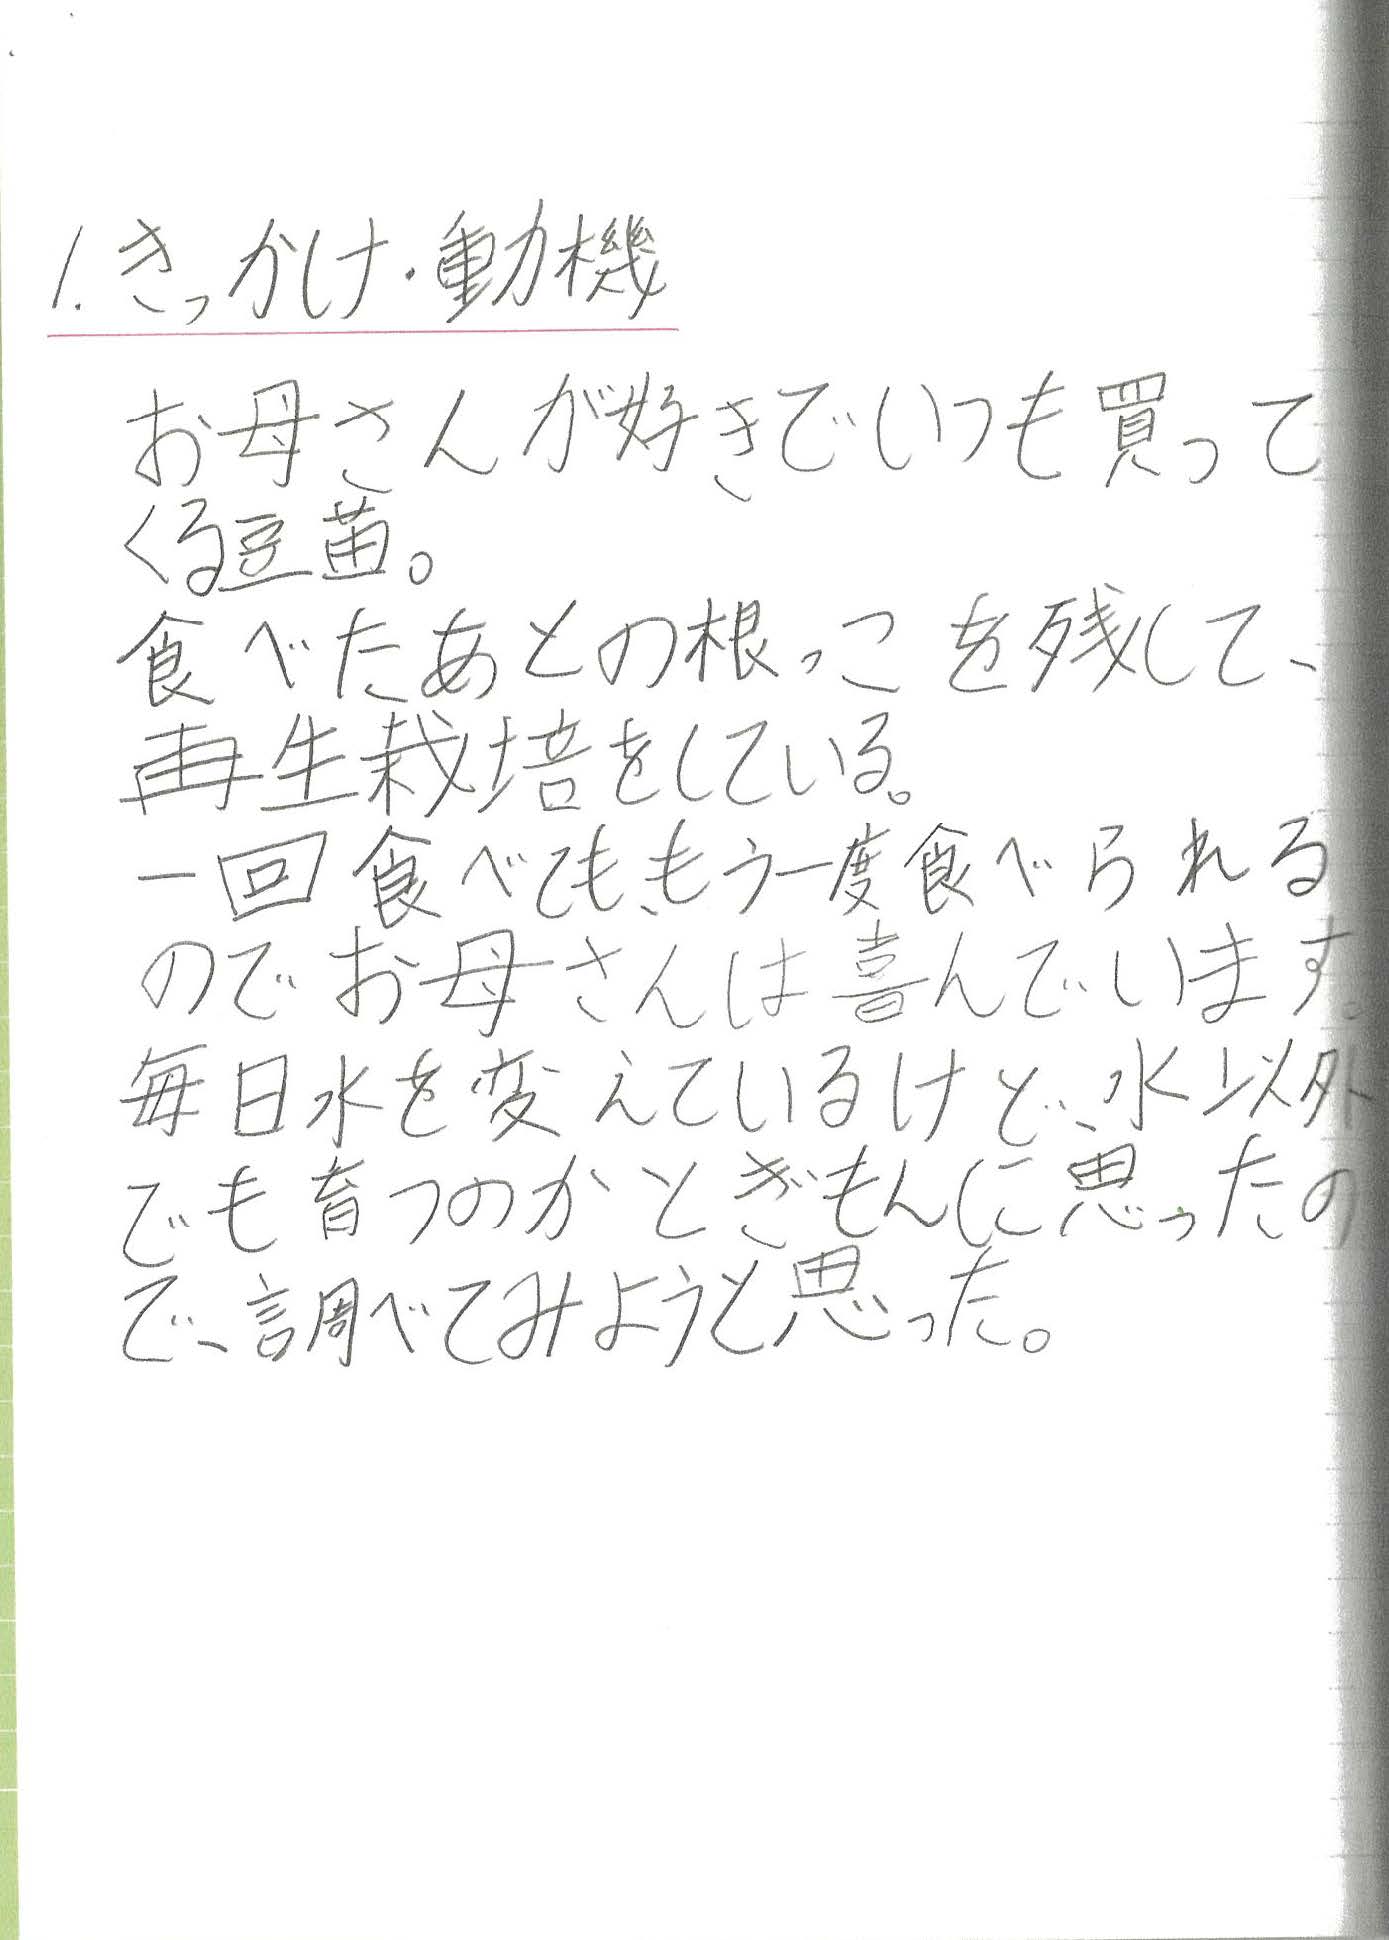 1.きっかけ・動機
お母さんが好きでいつも買って
くる豆苗。
食べたあとの根っこを残して、
再生栽培をしている。
一回食べてももう一度食べられる
のでお母さんは喜んでいます。
毎日水を変えているけど、水以外
でも育つのかとぎもんに思ったの
で、調べてみようと思った。